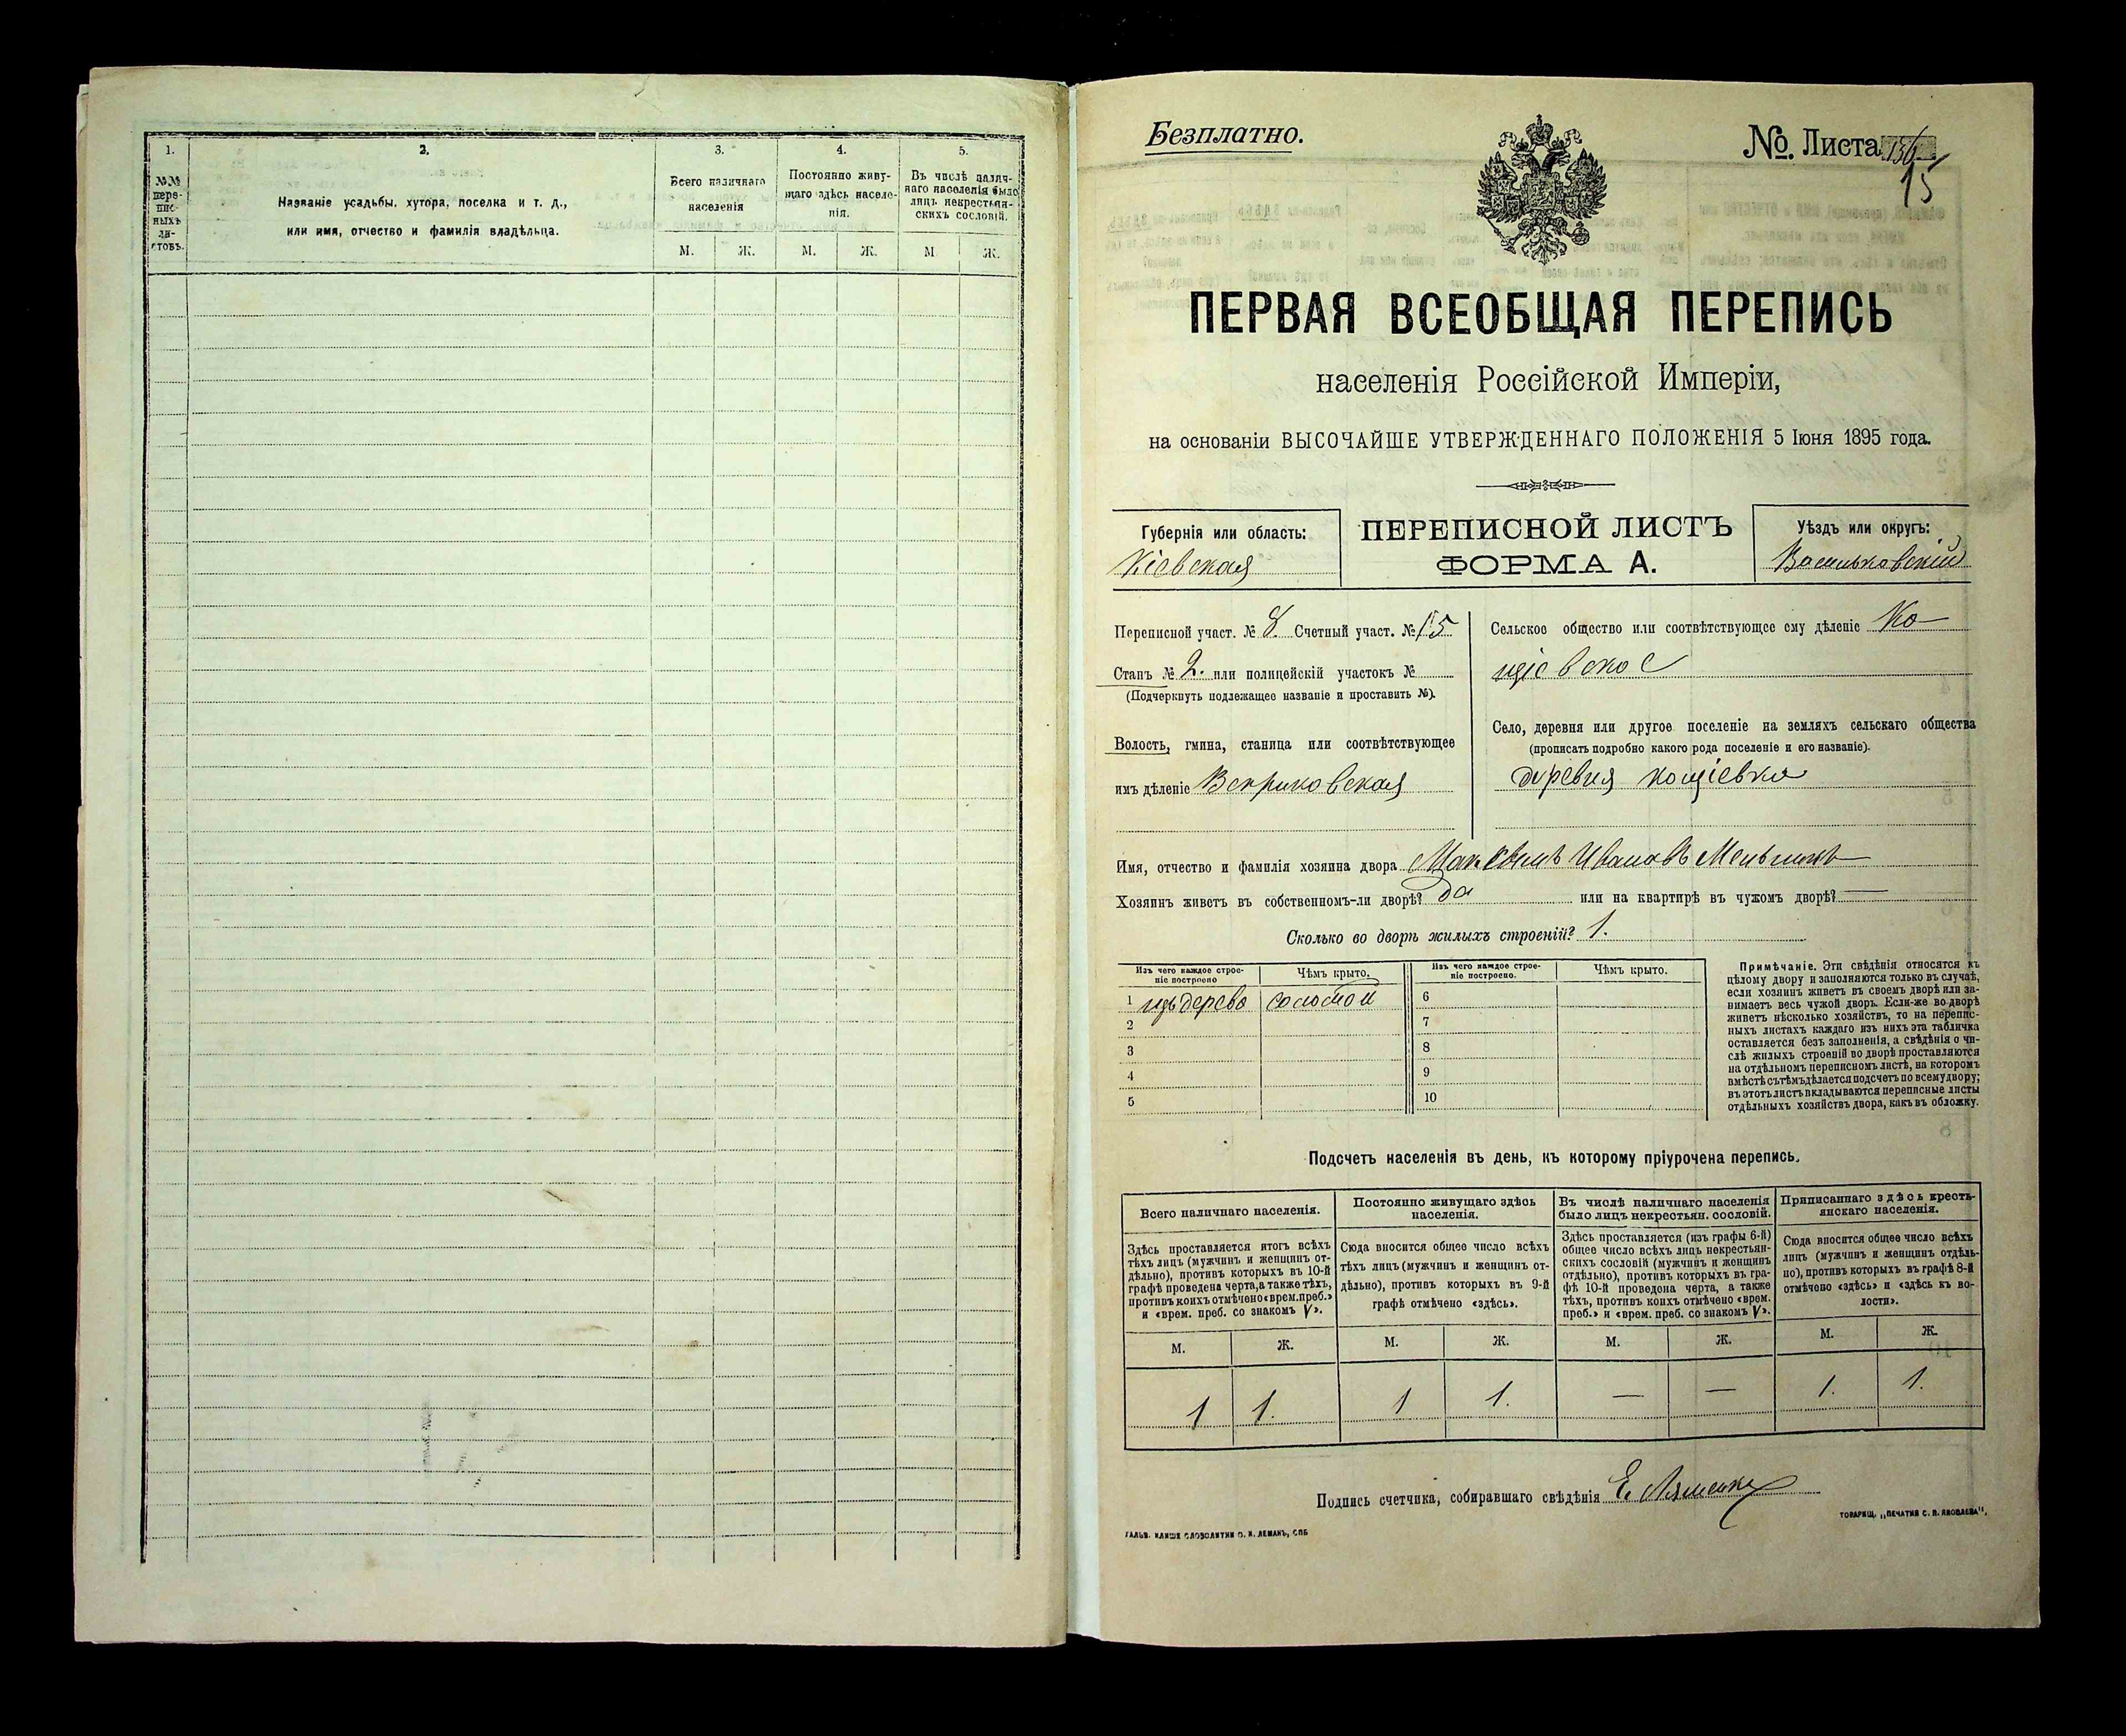 1.
2.
3.
4.
5.
№№
пере-
пис-
ныхъ
ли-
стовъ.
Названіе усадьбы, хутора, поселка и т. д.,
или имя, отчество и фамилія владѣльца.
Всего наличнаго
населенія
Постоянно живу-
щаго здѣсь населе-
нія.
Въ числѣ налич-
наго населенія было
лицъ некрестьян-
скихъ сословій.
М.
Ж.
М.
Ж.
М
Ж.
Безплатно.
№. Листа
15
ПЕРВАЯ ВСЕОБЩАЯ ПЕРЕПИСЬ
населенія Россійской Имперіи,
на основаніи ВЫСОЧАЙШЕ УТВЕРЖДЕННАГО ПОЛОЖЕНІЯ 5 Іюня 1895 года.
Губернія или область:
Кіевская
ПЕРЕПИСНОЙ ЛИСТЪ
ФОРМА А.
Уѣздъ или округъ:
Васильковскій
Переписной участ. № 8. Счетный участ. № 15
Станъ № 2. или полицейскій участокъ №
(Подчеркнуть подлежащее названіе и проставить №).
Волость, гмина, станица или соотвѣтствующее
имъ дѣленіе Веприковская
Сельское общество или соотвѣтствующее ему дѣленіе Ко-
щіевское
Село, деревня или другое поселеніе на земляхъ сельскаго общества
(прописать подробно какого рода поселеніе и его названіе).
деревня кощіевка
Имя, отчество и фамилія хозяина двора Ивановъ
Хозяинъ живетъ въ собственномъ-ли дворѣ? да или на квартирѣ въ чужомъ дворѣ? —
Сколько во дворѣ жилыхъ строеній? 1.
Изъ чего каждое строе-
ніе построено
Чѣмъ крыто.
Изъ чего каждое строе-
ніе построено.
Чѣмъ крыто.
1 изъ дерева соломой 6
2 7
3 8
4 9
5 10
Примѣчаніе. Эти свѣдѣнія относятся къ
цѣлому двору и заполняются только въ случаѣ,
если хозяинъ живетъ въ своемъ дворѣ или за-
нимаетъ весь чужой дворъ. Если-же во дворѣ
живетъ нѣсколько хозяйствъ, то на перепис-
ныхъ листахъ каждаго изъ нихъ эта табличка
оставляется безъ заполненія, а свѣдѣнія о чи-
слѣ жилыхъ строеній во дворѣ проставляются
на отдѣльномъ переписномъ листѣ, на которомъ
вмѣстѣ съ тѣмъ дѣлается подсчетъ по всему двору;
въ этотъ листъ вкладываются переписные листы
отдѣльныхъ хозяйствъ двора, какъ въ обложку.
Подсчетъ населенія въ день, къ которому пріурочена перепись.
Всего наличнаго населенія.
Постоянно живущаго здѣсь
населенія.
Въ числѣ наличнаго населенія
было лицъ некрестьян. сословій.
Приписаннаго здѣсь кресть-
янскаго населенія.
Здѣсь проставляется итогъ всѣхъ
тѣхъ лицъ (мужчинъ и женщинъ от-
дѣльно), противъ которыхъ въ 10-й
графѣ проведена черта, а также тѣхъ,
противъ коихъ отмѣчено «врем. преб.»
и «врем. преб. со знакомъ V».
Сюда вносится общее число всѣхъ
тѣхъ лицъ (мужчинъ и женщинъ от-
дѣльно), противъ которыхъ въ 9-й
графѣ отмѣчено «здѣсь».
Здѣсь проставляется (изъ графы 6-й)
общее число всѣхъ лицъ некрестьян-
скихъ сословій (мужчинъ и женщинъ
отдѣльно), противъ которыхъ въ гра-
фѣ 10-й проведена черта, а также
тѣхъ, противъ коихъ отмѣчено «врем.
преб.» и «врем. преб. со знакомъ V».
Сюда вносится общее число всѣхъ
лицъ (мужчинъ и женщинъ отдѣль-
но), противъ которыхъ въ графѣ 8-й
отмѣчено «здѣсь» и «здѣсь въ во-
лости».
М. Ж. М. Ж. М. Ж. М. Ж.
1 1. 1 1. — — 1. 1.
Подпись счетчика, собиравшаго свѣдѣнія Е.
ГАЛЬВ. КЛИШЕ СЛОВОЛИТНИ О. И. ЛЕМАНЪ, СПБ
ТОВАРИЩ. „ПЕЧАТНЯ С. П. ЯКОВЛЕВА".